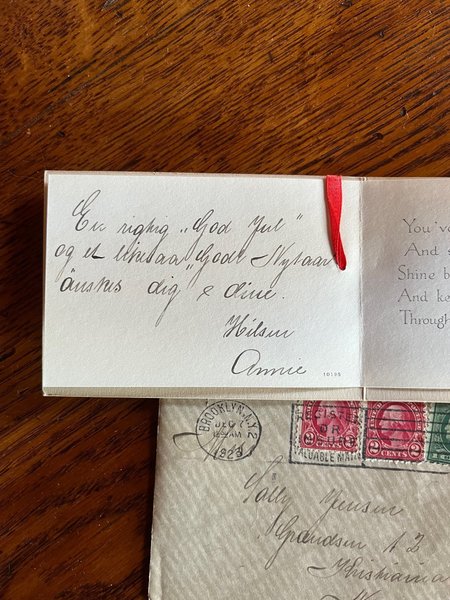 En rigtig „God Jul"
og et likesaa „Godt Nytaar"
ønskes dig & dine.
Hilsen
Annie
10195
You'v
And s
Shine b
And ke
Through
BROOKLYN, N.Y. 2
DEC 7
AM
1923
REGISTER
OR
VALUABLE MAIL
2 CENTS 2
Sally Jensen
Grandsen 12
Kristiania